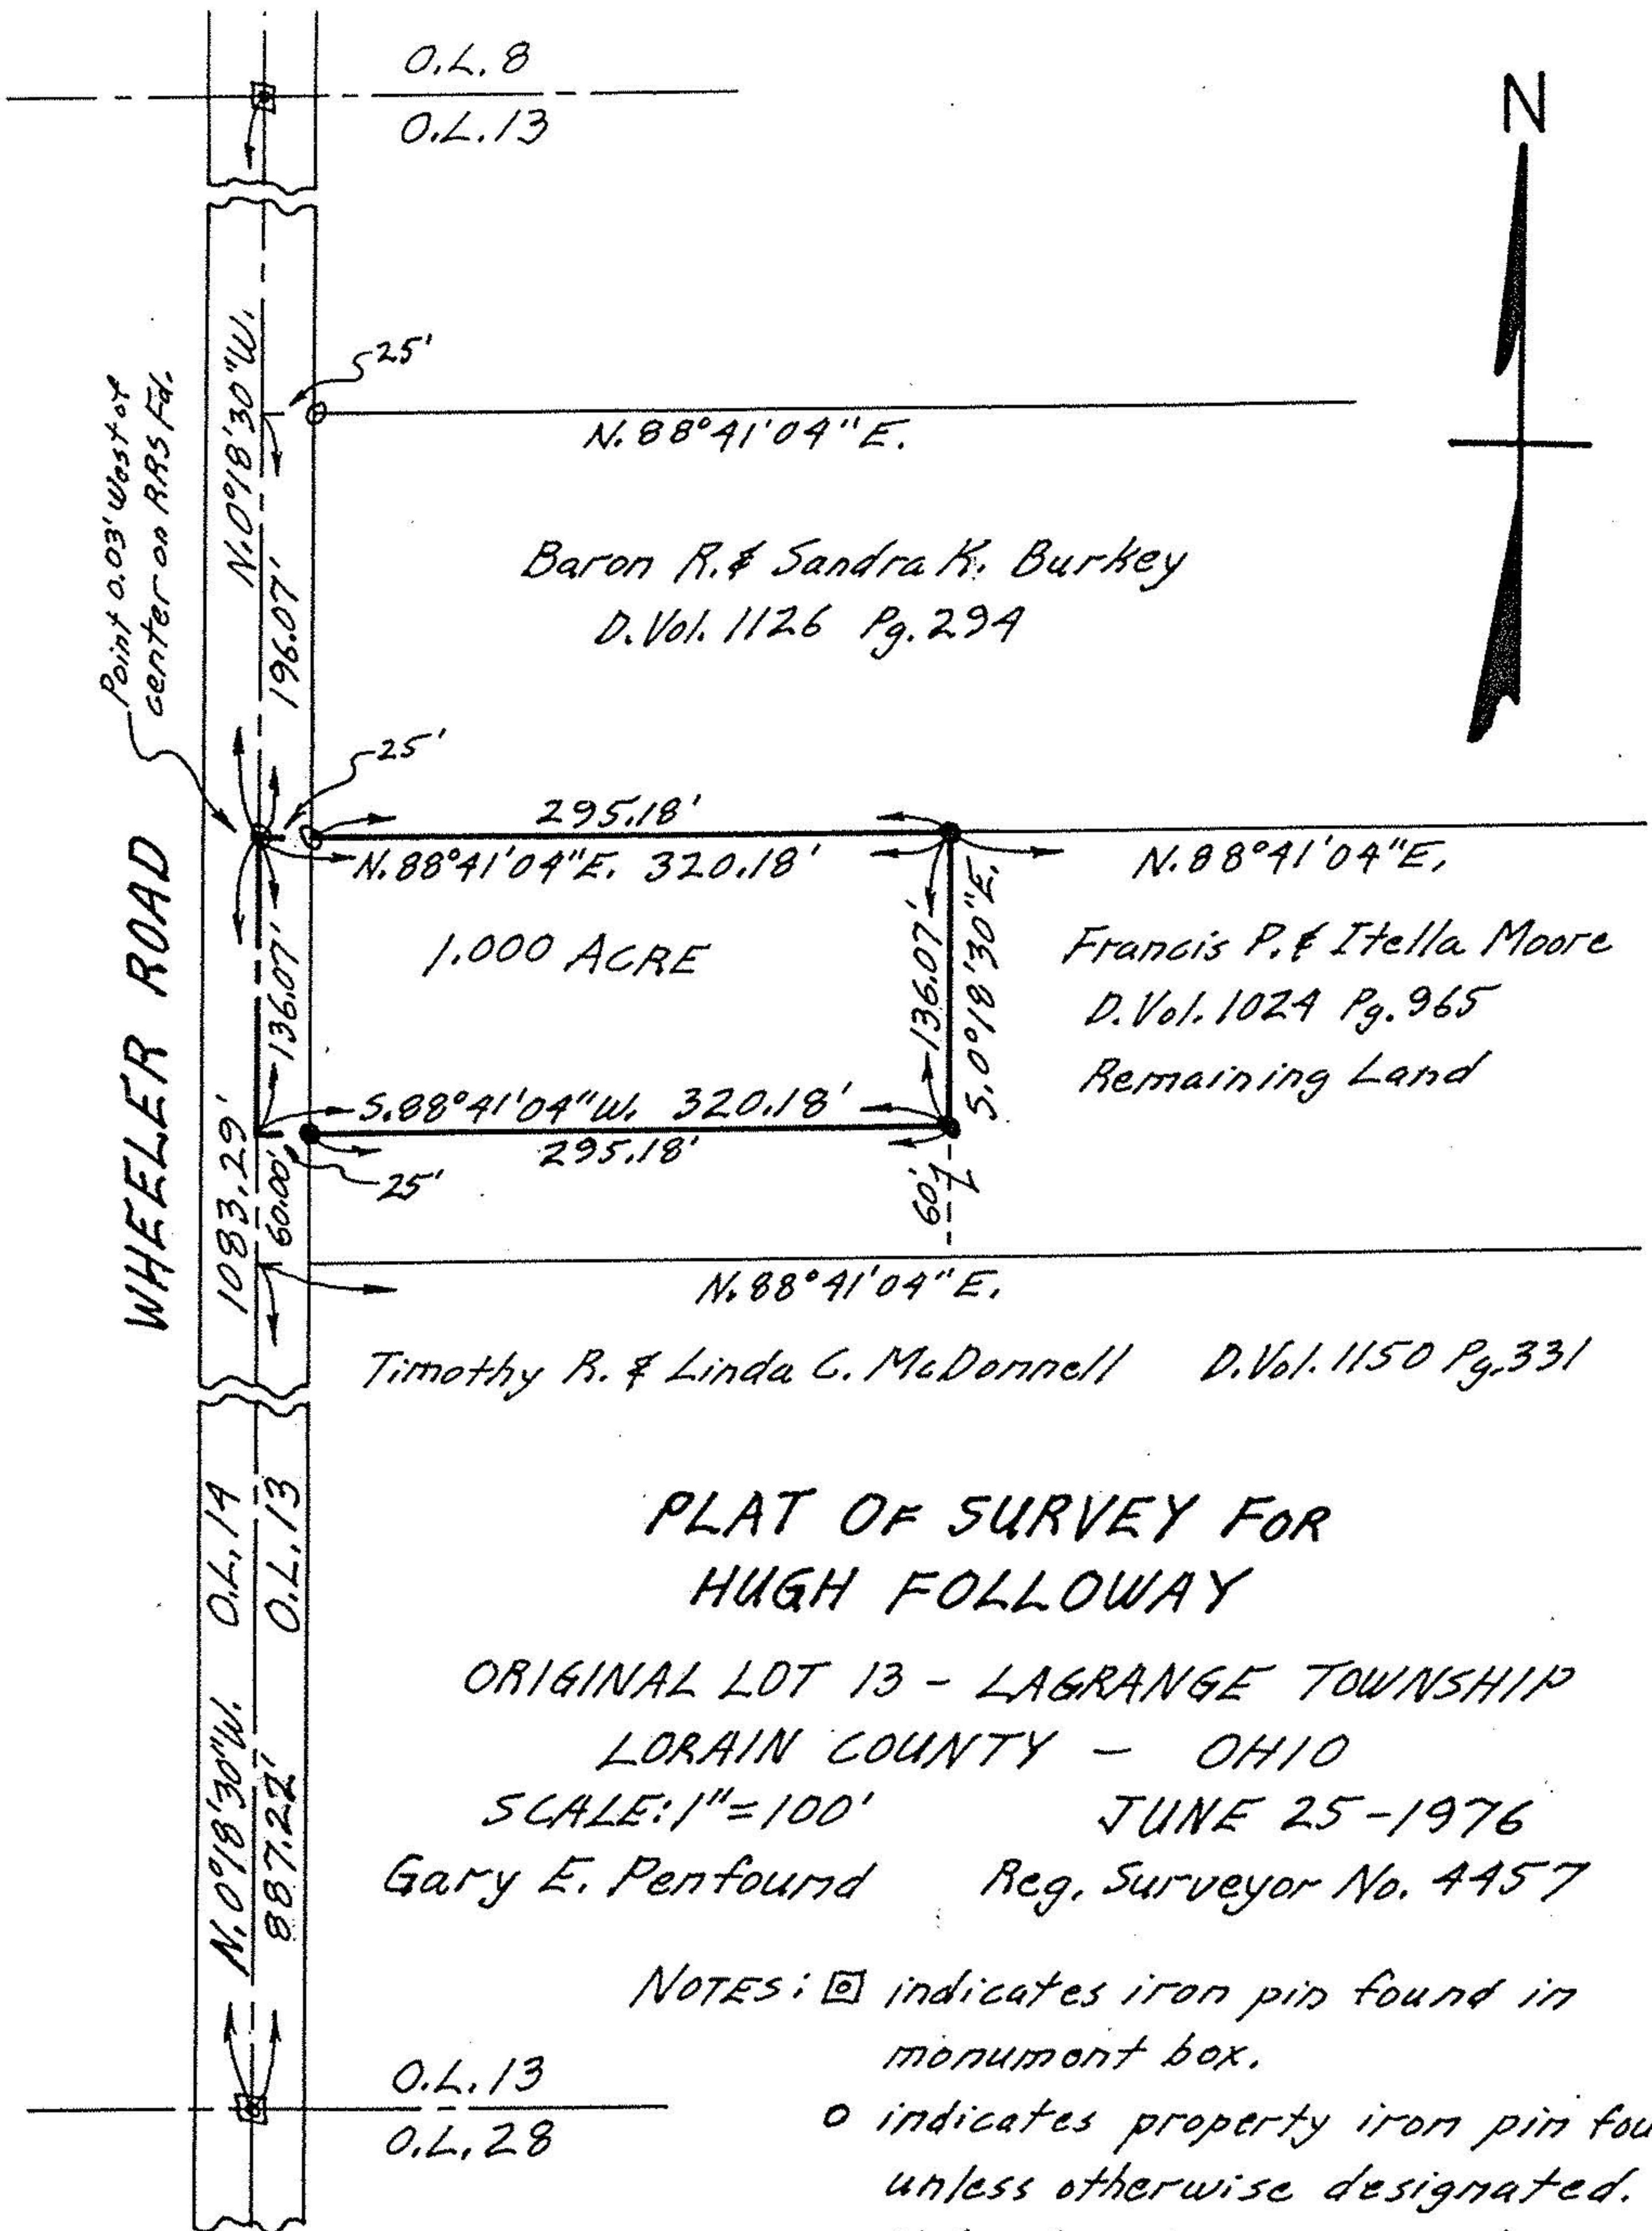 O.L. 8
O.L. 13
N
N. 0°18'30"W.
25'
N. 88°41'04"E.
Point 0.03' West of
center on RRS Fd.
196.07'
Baron R. & Sandra K. Burkey
D. Vol. 1126 Pg. 294
25'
295.18'
N. 88°41'04"E. 320.18'
N. 88°41'04"E.
WHEELER ROAD
136.07'
1.000 ACRE
136.07'
S. 0°18'30"E.
Francis P. & Itella Moore
D. Vol. 1024 Pg. 965
Remaining Land
S. 88°41'04"W. 320.18'
295.18'
25'
1083.29'
60.00'
60'
N. 88°41'04"E.
Timothy R. & Linda C. McDonnell D. Vol. 1150 Pg. 331
O.L. 14
O.L. 13
N. 0°18'30"W.
887.22'
PLAT OF SURVEY FOR
HUGH FOLLOWAY
ORIGINAL LOT 13 - LAGRANGE TOWNSHIP
LORAIN COUNTY - OHIO
SCALE: 1"=100' JUNE 25-1976
Gary E. Penfound Reg. Surveyor No. 4457
NOTES: indicates iron pin found in
monument box.
O.L. 13
O.L. 28
o indicates property iron pin fou
unless otherwise designated.